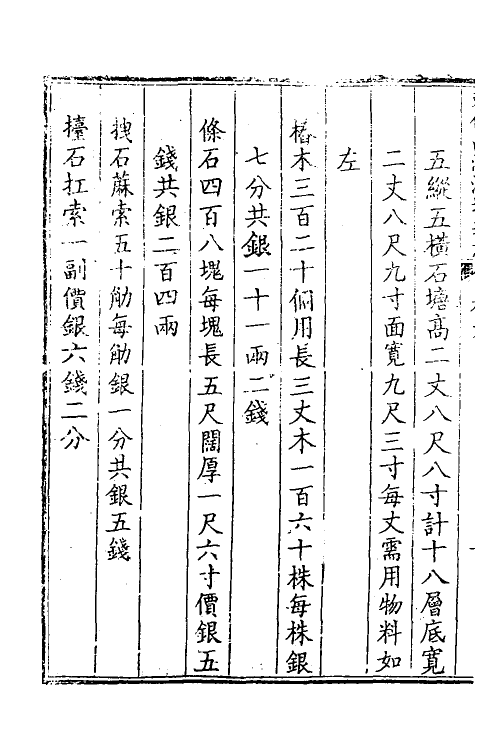 五縱五橫石塘高二丈八尺八寸計十八層底寬
二丈八尺九寸面寬九尺三寸每丈需用物料如
左
樁木三百二十個用長三丈木一百六十株每株銀
七分共銀一十一兩二錢
條石四百八塊每塊長五尺闊厚一尺六寸價銀五
錢共銀二百四兩
拽石蔴索五十觔每觔銀一分共銀五錢
擡石扛索一副價銀六錢二分